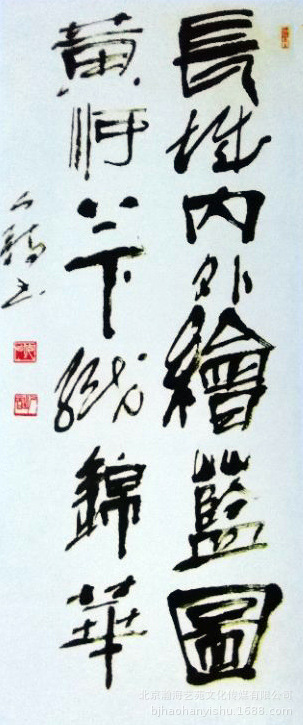 長城内外繪藍圖
黃河上下織錦華
北京瀚海艺苑文化传媒有限公司
bjhaohanyishu.1688.com